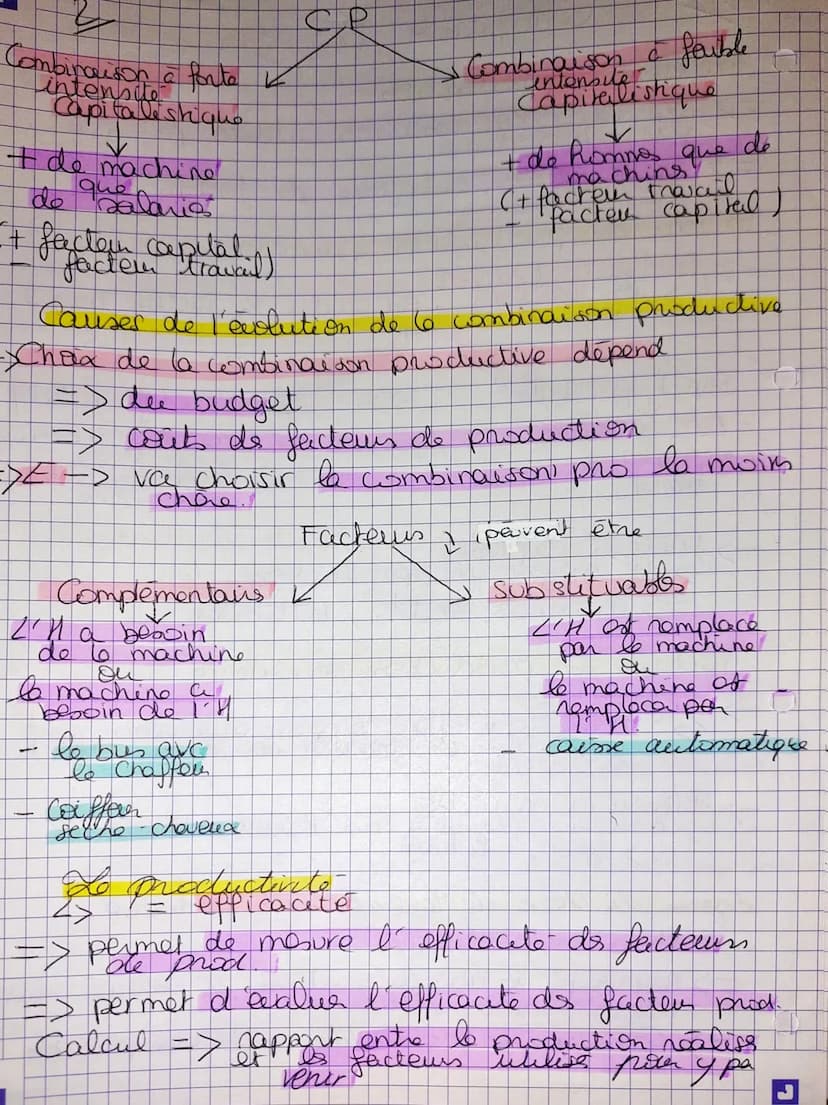 2
CP
Combinaison à forte
intensité
capitalistique
+ de machine
que
de salariés
(+ facteur capital
- facteur travail)
Combinaison à faible
intensité
capitalistique
+ de hommes que de
machins
(+ facteur travail
- facteur capital)
Causes de l'évolution de la combinaison productive
-> Choix de la combinaison productive dépend
=> du budget
=> couts ds facteurs de production
=> E -> va choisir la combinaison pro la moins
chère.
Facteurs peuvent être
Complémentairs
L'H a besoin
de la machine
ou
la machine a
besoin de l'H
- le bus avc
le chaffeur
- Coiffeur
seche-cheveux
substituables
L'H est remplacé
par la machine
ou
la machine est
remplacé par
l'H.
- caisse automatique
La productivité
<> = efficacité
=> permet de mesure l'efficacité ds facteurs
de prod.
=> permet d'évalue l'efficacité ds facteur prod.
Calcul => rapport entre la production réalisé
et les facteurs utilisé pour y pa
venir